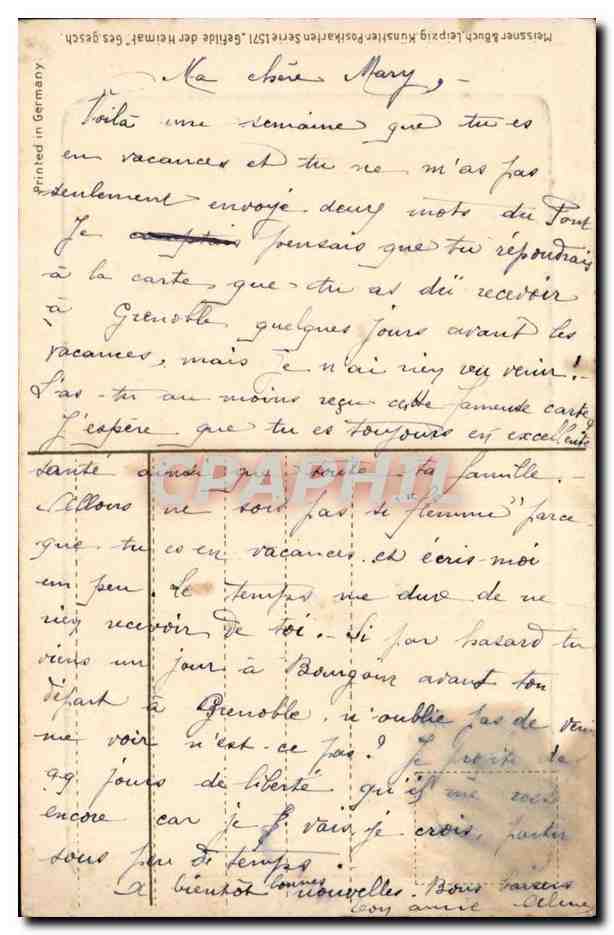 Meissner & Buch, Leipzig, Künstler-Postkarten Serie 1571 „Gefilde der Heimat" Ges. gesch.
Printed in Germany.
Ma chère Mary, -
Voilà une semaine que tu es
en vacances et tu ne m'as pas
seulement envoyé deux mots du Pont
Je pensais que tu répondrais
à la carte que tu as dû recevoir
à Grenoble quelques jours avant les
vacances, mais je n'ai rien vu venir ! -
L'as-tu au moins reçu cette fameuse carte ?
J'espère que tu es toujours en excellente
santé ainsi que toute ta famille. -
Allons ne sois pas si "flemme" parce
que tu es en vacances et écris-moi
un peu. Le temps me dure de ne
rien recevoir de toi. - Si par hasard tu
viens un jour à Bourgoin avant ton
départ à Grenoble, n'oublie pas de venir
me voir n'est-ce pas ? Je profite des
qq jours de liberté qu'il me reste
encore car je vais, je crois, partir
sous peu de temps.
A bientôt bonnes nouvelles. Bons baisers
Ton amie Aline
CPAPHIL